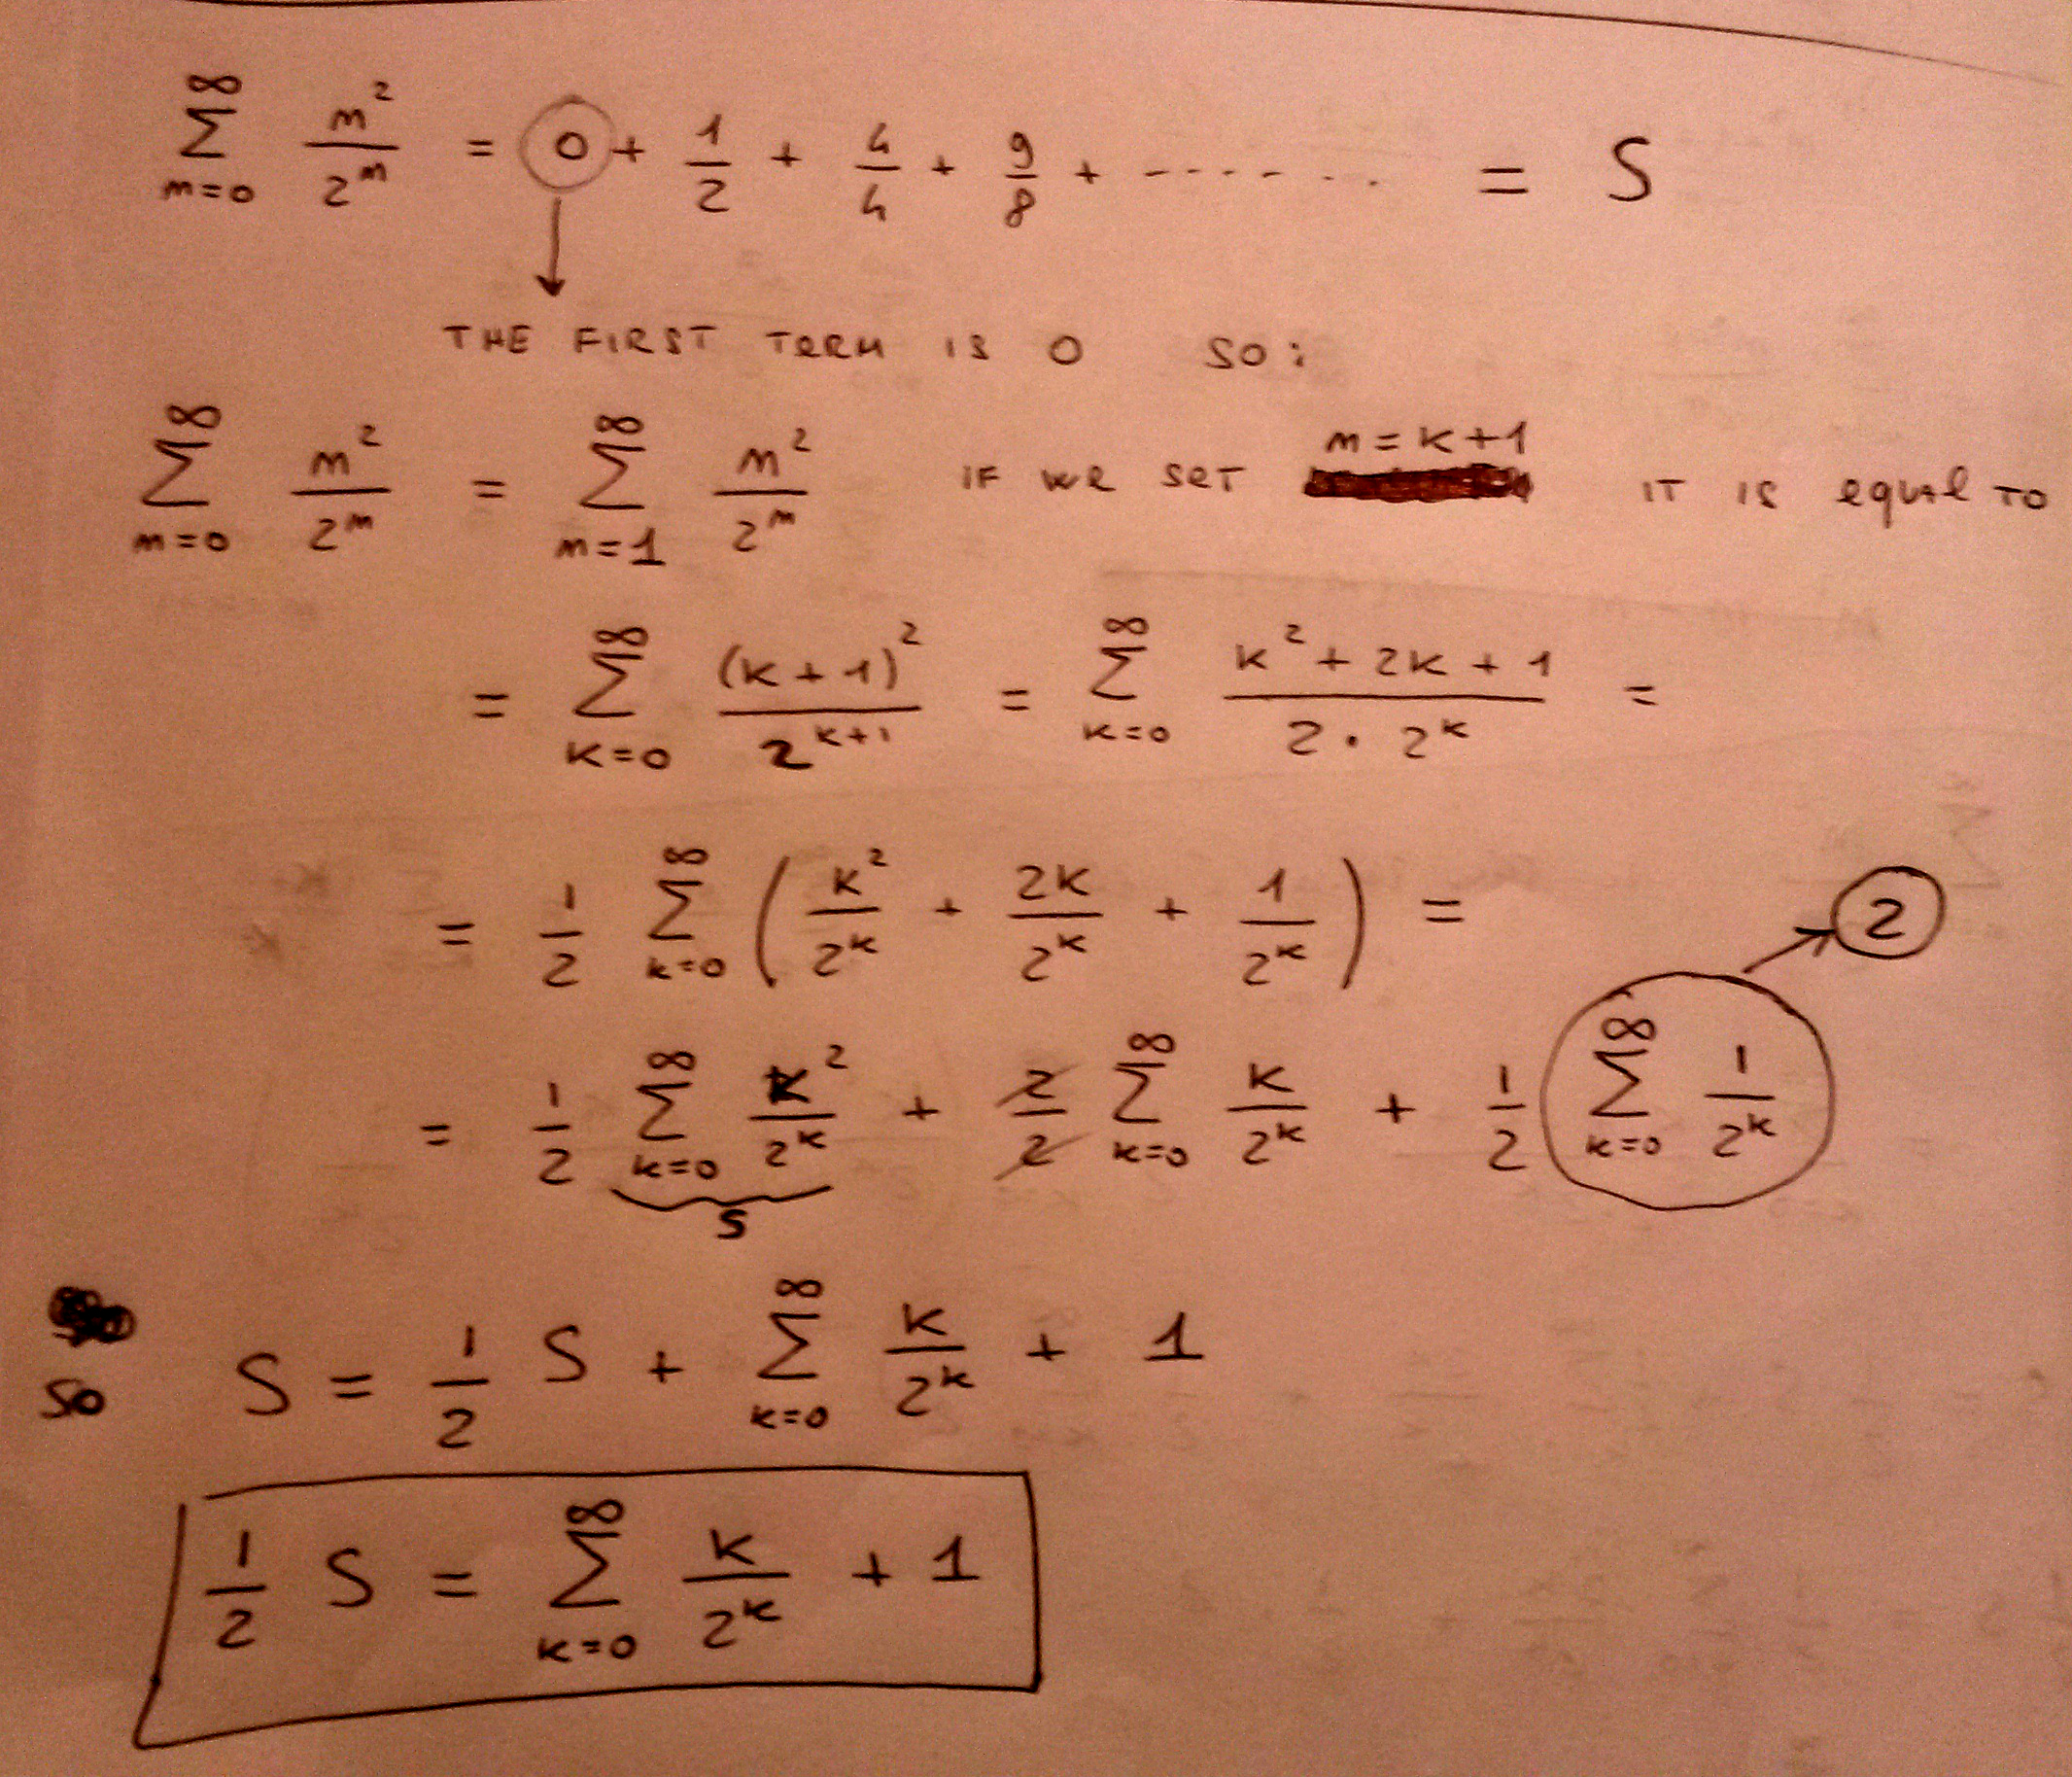 ∞ Σ m=0 m²/2^m = 0 + 1/2 + 4/4 + 9/8 + ------... = S
THE FIRST TERM IS 0 SO:
∞ Σ m=0 m²/2^m = ∞ Σ m=1 m²/2^m IF WE SET m=k+1 IT IS equal TO
= ∞ Σ k=0 (k+1)²/2^(k+1) = ∞ Σ k=0 (k²+2k+1)/(2·2^k) =
= 1/2 ∞ Σ k=0 (k²/2^k + 2k/2^k + 1/2^k) =
2
= 1/2 ∞ Σ k=0 k²/2^k + 2/2 ∞ Σ k=0 k/2^k + 1/2 ∞ Σ k=0 1/2^k
S
so S = 1/2 S + ∞ Σ k=0 k/2^k + 1
1/2 S = ∞ Σ k=0 k/2^k + 1